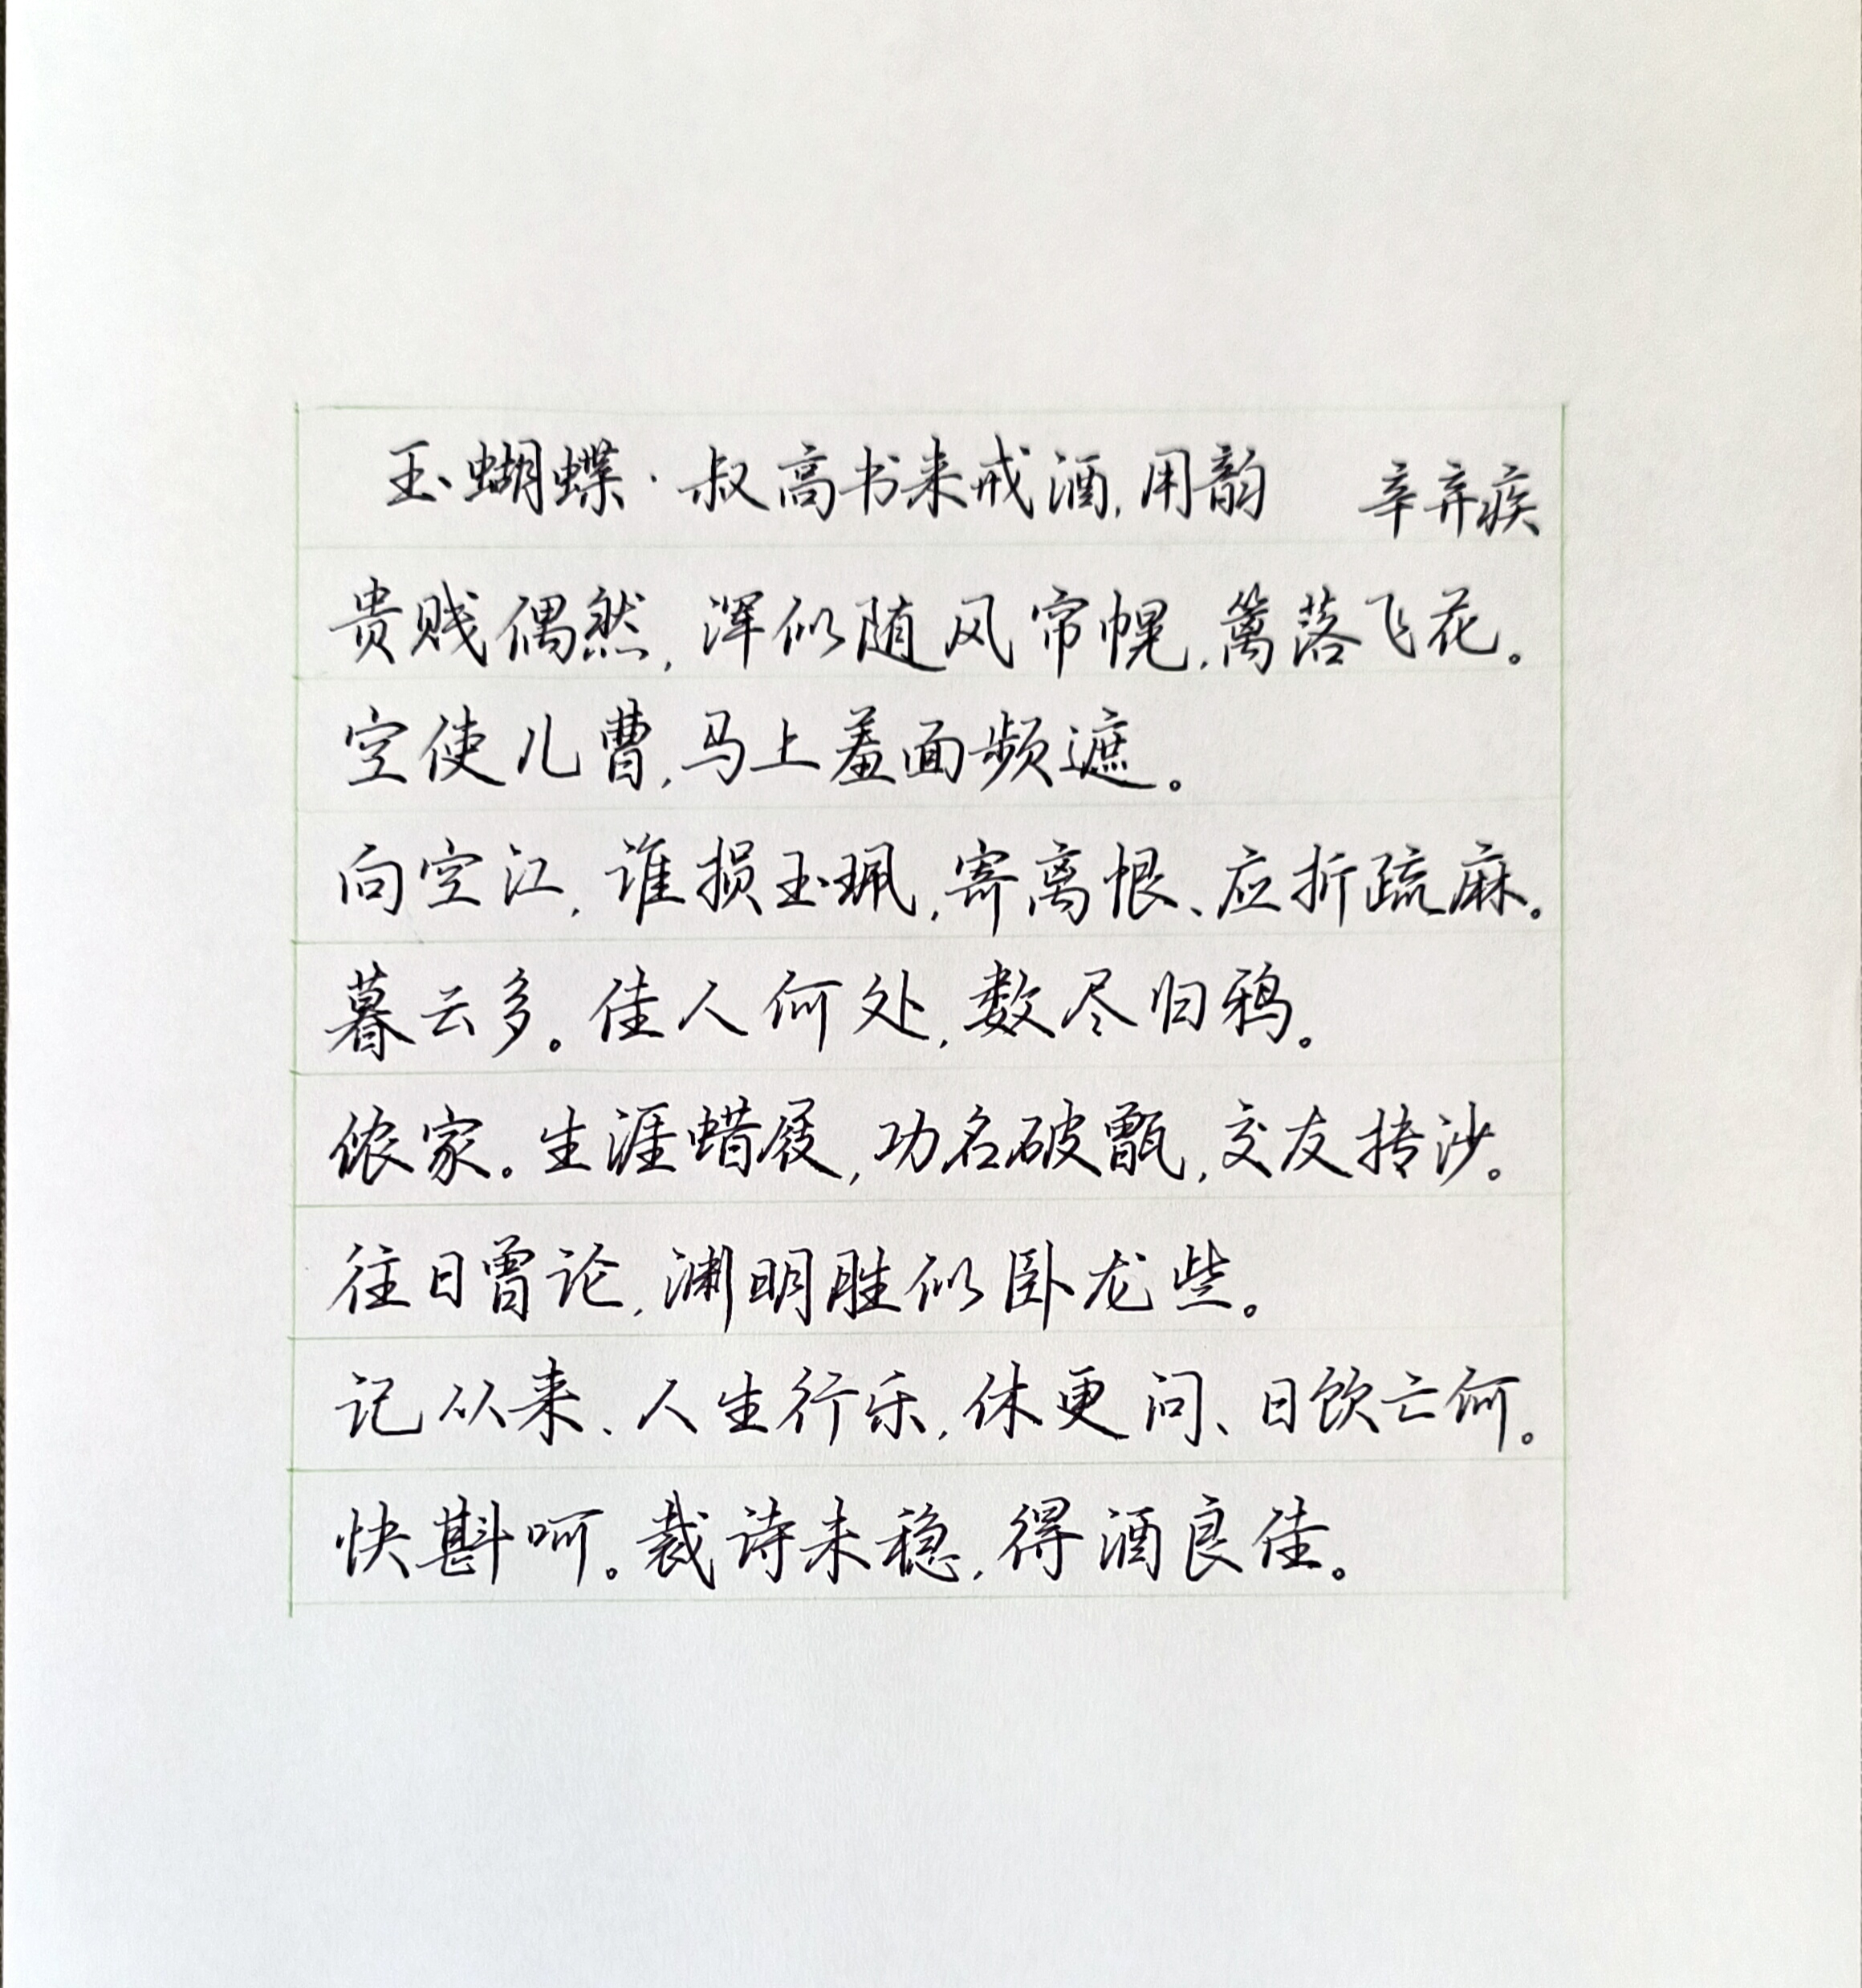 玉蝴蝶·叔高书来戒酒,用韵 辛弃疾
贵贱偶然,浑似随风帘幌,篱落飞花。
空使儿曹,马上羞面频遮。
向空江,谁损玉珮,寄离恨、应折疏麻。
暮云多。佳人何处,数尽归鸦。
侬家。生涯蜡屐,功名破甑,交友抟沙。
往日曾论,渊明胜似卧龙些。
记从来、人生行乐,休更问、日饮亡何。
快斟呵。裁诗未稳,得酒良佳。